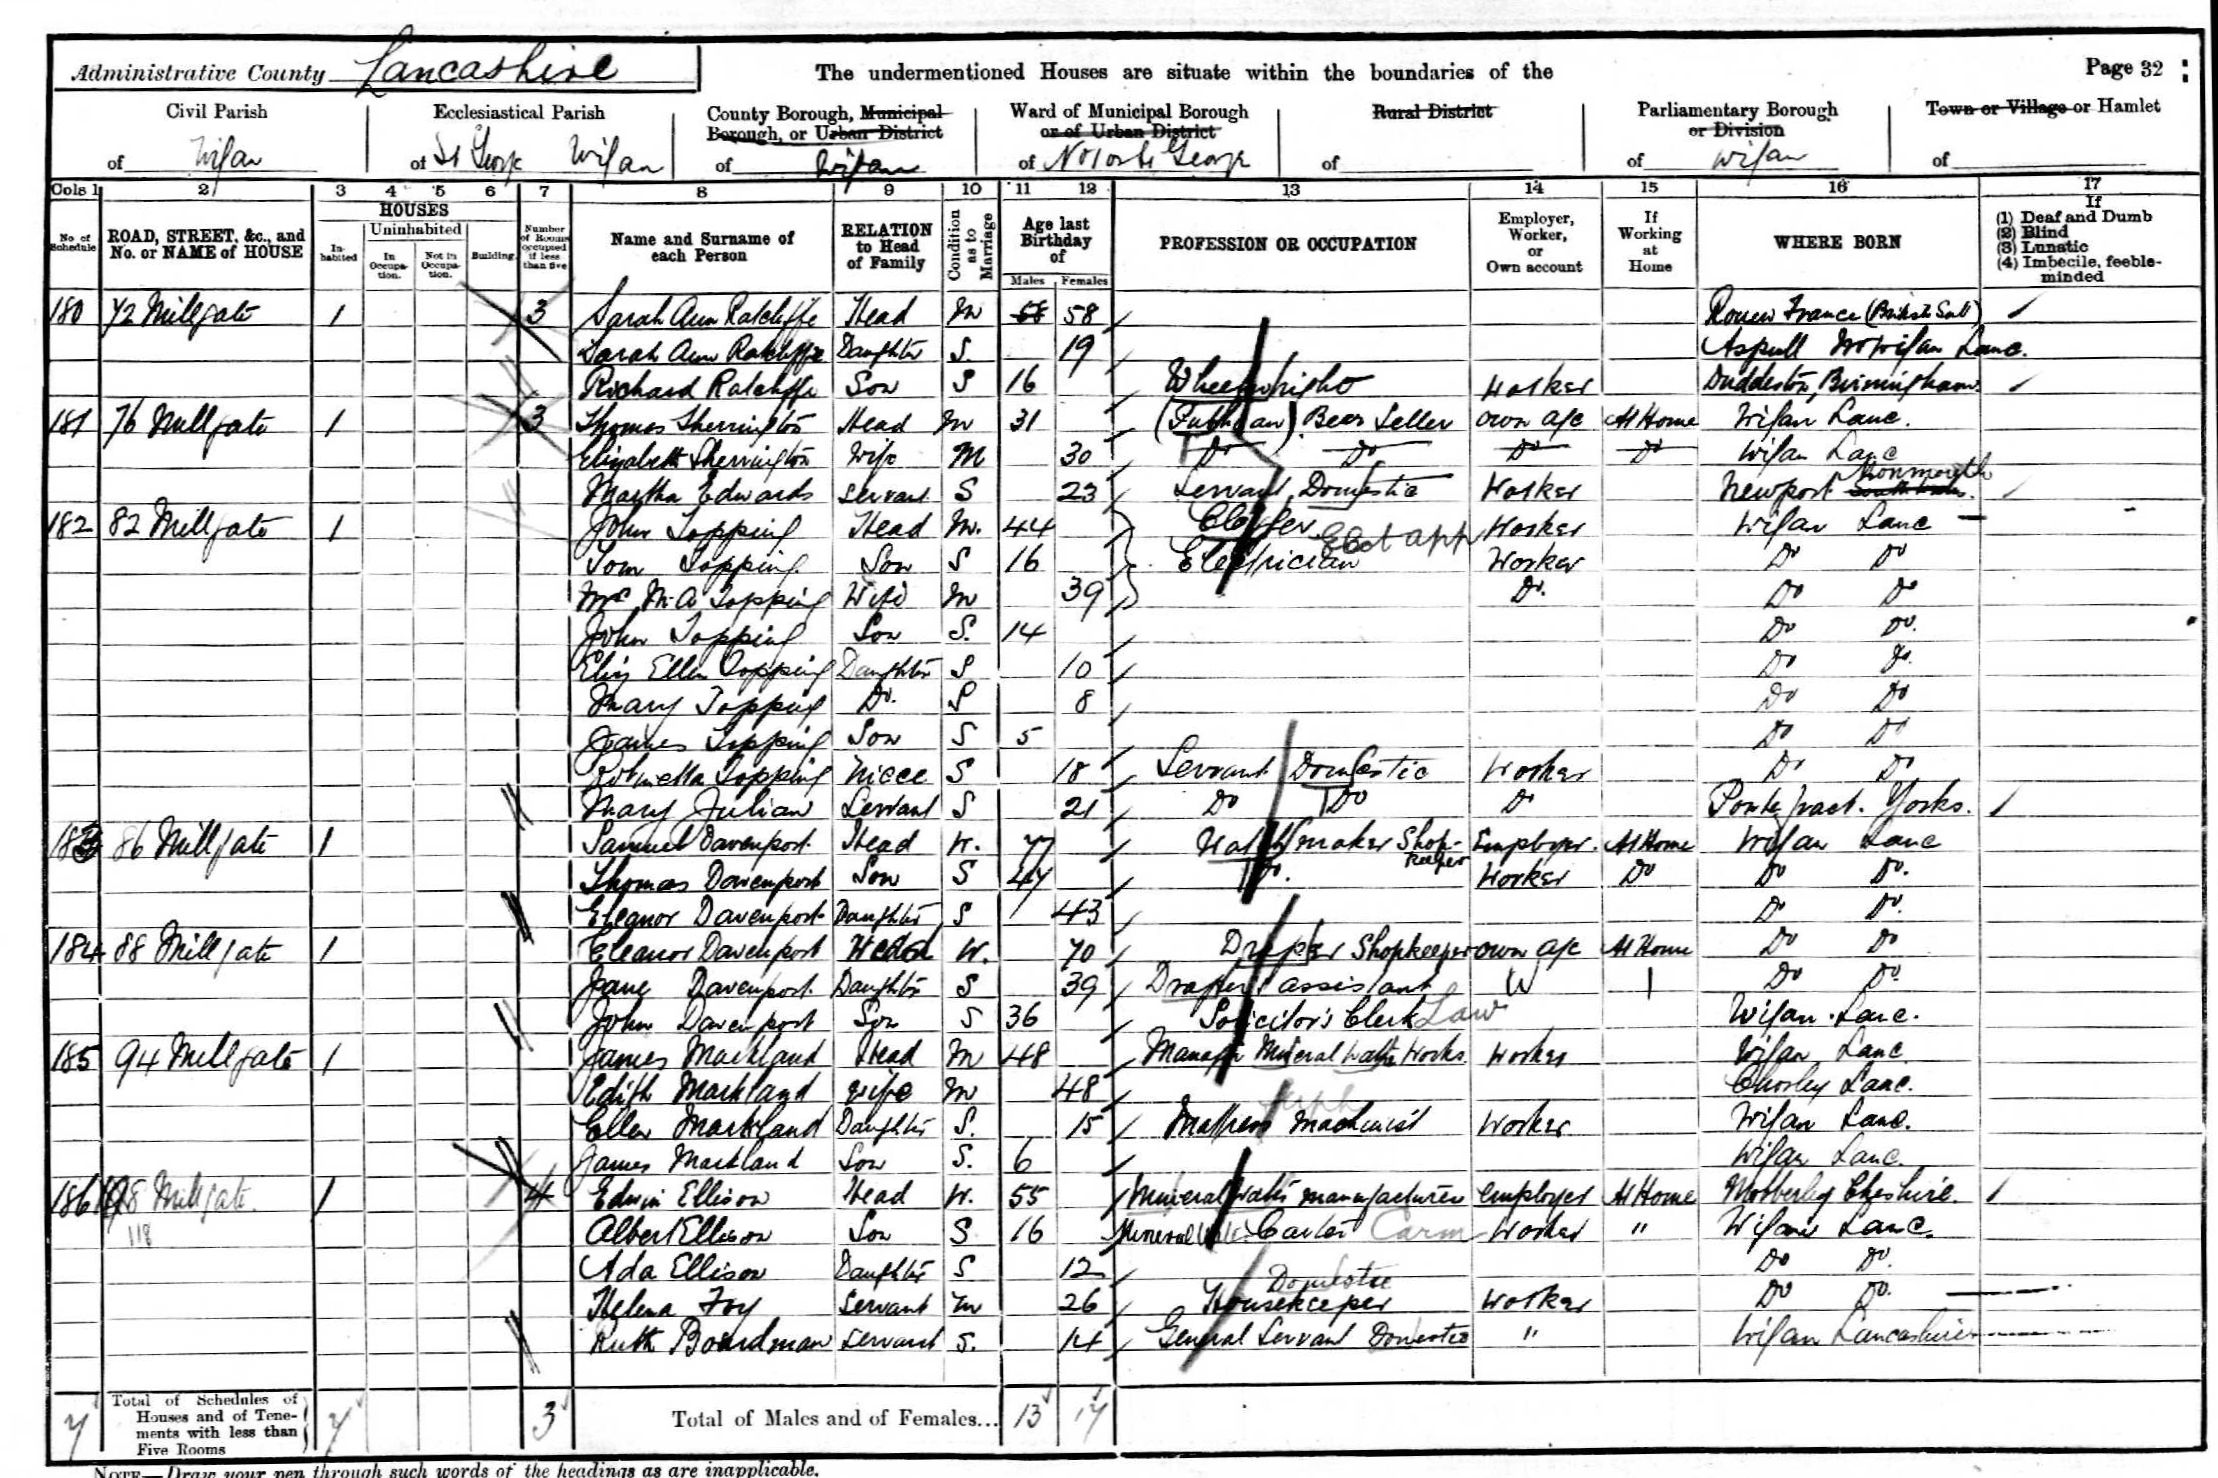 Administrative County Lancashire
The undermentioned Houses are situate within the boundaries of the
Page 32
Civil Parish of Wigan
Ecclesiastical Parish of St George Wigan
County Borough, Municipal Borough, or Urban District of Wigan
Ward of Municipal Borough or of Urban District of George
Rural District of
Parliamentary Borough or Division of Wigan
Town or Village or Hamlet of
Cols 1 2 3 4 5 6 7 8 9 10 11 12 13 14 15 16 17
No of Schedule
ROAD, STREET, &c., and No. or NAME of HOUSE
HOUSES
Inhabited
Uninhabited
In Occupation.
Not in Occupation.
Building.
Number of Rooms occupied if less than five
Name and Surname of each Person
RELATION to Head of Family
Condition as to Marriage
Age last Birthday of
Males Females
PROFESSION OR OCCUPATION
Employer, Worker, or Own account
If Working at Home
WHERE BORN
If
(1) Deaf and Dumb
(2) Blind
(3) Lunatic
(4) Imbecile, feeble-minded
180 72 Millgate 1 3 Sarah Ann Ratcliffe Head M 58 58 Rouen France (British Sub)
Sarah Ann Ratcliffe Daughter S. 19 Aspull Nr Wigan Lanc.
Richard Ratcliffe Son S 16 Wheelwright Worker Duddeston, Birmingham
181 76 Millgate 1 3 Thomas Sherrington Head M 31 (Publican) Beer Seller own a/c At Home Wigan Lanc.
Elizabeth Sherrington Wife M 30 Do Do Do Do Wigan Lanc
Martha Edwards Servant S 23 Servant Domestic Worker Newport Monmouth
182 82 Millgate 1 John Topping Head M. 44 Worker Wigan Lanc
Tom Topping Son S 16 Electrician Elect app Worker Do Do
Mrs M. A Topping Wife M 39 Do. Do Do
John Topping Son S. 14 Do Do.
Eliz Ellen Topping Daughter S 10 Do Do.
Mary Topping Do. S 8 Do Do
James Topping Son S 5 Do Do
Topping Niece S 18 Servant Domestic Worker Do Do
Mary Julian Servant S 21 Do Do Do Pontefract. Yorks.
183 86 Millgate 1 Samuel Davenport. Head W. 77 Watchmaker Shopkeeper Employer. At Home Wigan Lanc
Thomas Davenport Son S 47 Do. Worker Do Do Do.
Eleanor Davenport Daughter S 43 Do Do.
184 88 Millgate 1 Eleanor Davenport Head W. 70 Draper Shopkeeper own a/c At Home Do Do
Jane Davenport. Daughter S 39 Drapers assistant W 1 Do Do.
John Davenport Son S 36 Solicitor's Clerk Law Wigan. Lanc.
185 94 Millgate 1 James Markland Head M 48 Manager Mineral Water Works. Worker Wigan Lanc
Edith Markland Wife M 48 Chorley Lanc.
Ellen Markland Daughter S. 15 Mattress Machinist Worker Wigan Lanc.
James Markland Son S. 6 Wigan Lanc.
186 98 Millgate. 1 4 Edwin Ellison Head W. 55 Mineral Water manufacturer employer At Home Mobberley Cheshire.
118 Albert Ellison Son S 16 Mineral Water Carter Carm Worker " Wigan Lanc.
Ada Ellison Daughter S 12 Do Do.
Helena Foy Servant M 26 Housekeeper Domestic Worker Do Do.
Ruth Boardman Servant S. 14 General Servant Domestic " Wigan Lancashire
7 Total of Schedules of Houses and of Tenements with less than Five Rooms 7 3 Total of Males and of Females... 13 17
NOTE—Draw your pen through such words of the headings as are inapplicable.